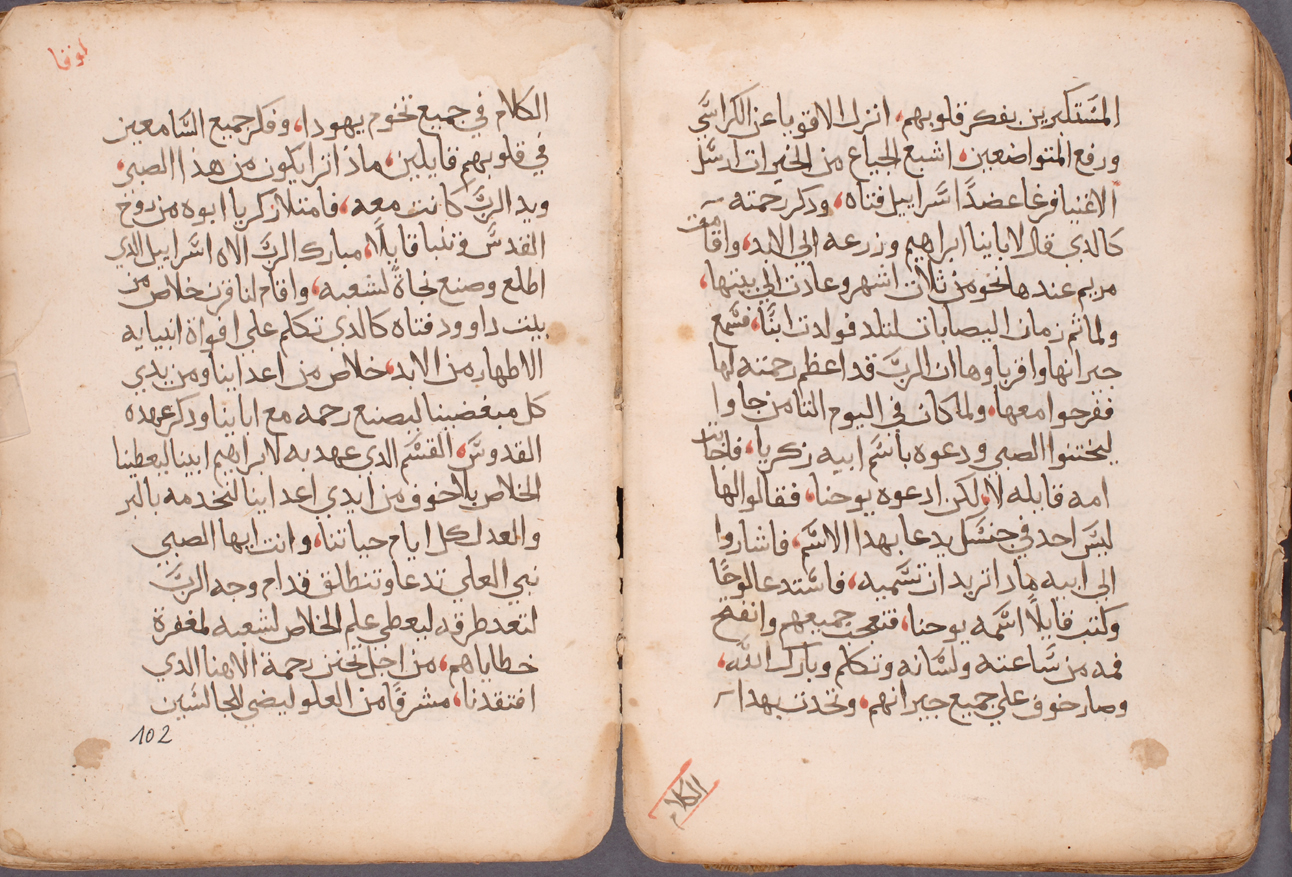 المستكبرين بفكر قلوبهم، انزل الاقويا عن الكراسي
ورفع المتواضعين، اشبع الجياع من الخيرات ارسل
الاغنيا فرغا عضدًا سراييل فتاه، ودكر رحمته
كالدى قال لابايناابراهيم وزرعه الى الابد، واقامت
مريم عندها نحو من ثلاث اشهر وعادت الي بيتها،
ولما تم زمان اليصابات لتلد فولدت ابنًا، فسمع
جيرانها واقرباوها ان الرب قد اعظم رحمته لها
ففرحوا معها، ولما كان في اليوم الثامن جاوا
ليختنوا الصبي ودعوه باسم ابيه زكريا، فاجابت
امه قايله لا، لكن ادعوه يوحنا، فقالوا لها
ليس احد في جنسك يدعا بهدا الاسم، فاشاروا
الى ابيه مادا تريد ان تسميه، فاستدعا لوحًا
وكتب قايلاً اسمه يوحنا، فتعجب جميعهم وانفتح
فمه من ساعته ولسانه وتكلم وبارك الله،
وصار خوف علي جميع جيرانهم، وتحدث بهدا
الكلام
لوقا
الكلام في جميع تخوم يهودا، وفكر جميع السامعين
في قلوبهم قايلين، مادا ترا يكون من هدا الصبي،
ويد الرب كانت معه، فامتلا زكريا ابوه من روح
القدس وتنبا قايلاً، مبارك الرب الاه اسراييل الدي
اطلع وصنع نجاة لشعبه، واقام لنا قرن خلاص من
بيت داوود فتاه كالدي تكلم علي افواة انبيايه
الاطهار من الابد، خلاص من اعداينا ومن يدي
كل مبغضينا ليصنع رحمه مع اباينا ودكر عهده
القدوس، القسم الدي عهد به لابراهيم ابينا ليعطينا
الخلاص بلا خوف من ايدي اعداينا لنخدمه بالبر
والعدل كل ايام حياتنا، وانت ايها الصبي
نبي العلي تدعا وتنطلق قدام وجه الرب
لتعد طرقه ليعطي علم الخلاص لشعبه لمغفرة
خطاياهم، من اجل تحنن رحمة الاهنا الدي
افتقدنا، مشرقًا من العلو ليضي للجالسين
102